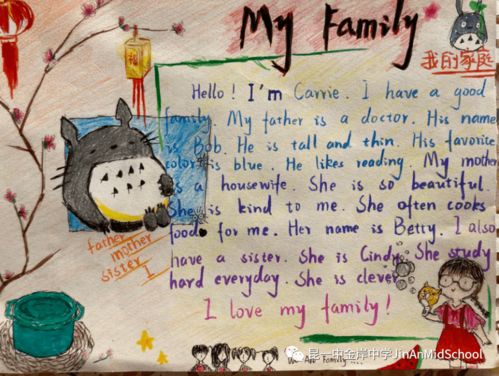 My Family
我的家庭
Hello! I'm Carrie. I have a good
family. My father is a doctor. His name
is Bob. He is tall and thin. His favorite
color is blue. He likes reading. My mother
is a housewife. She is so beautiful.
She is kind to me. She often cooks
food for me. Her name is Betty. I also
have a sister. She is Cindy. She study
hard everyday. She is clever.
I love my family!
father
mother
sister
I
Family
昆一中金岸中学JinAnMidSchool